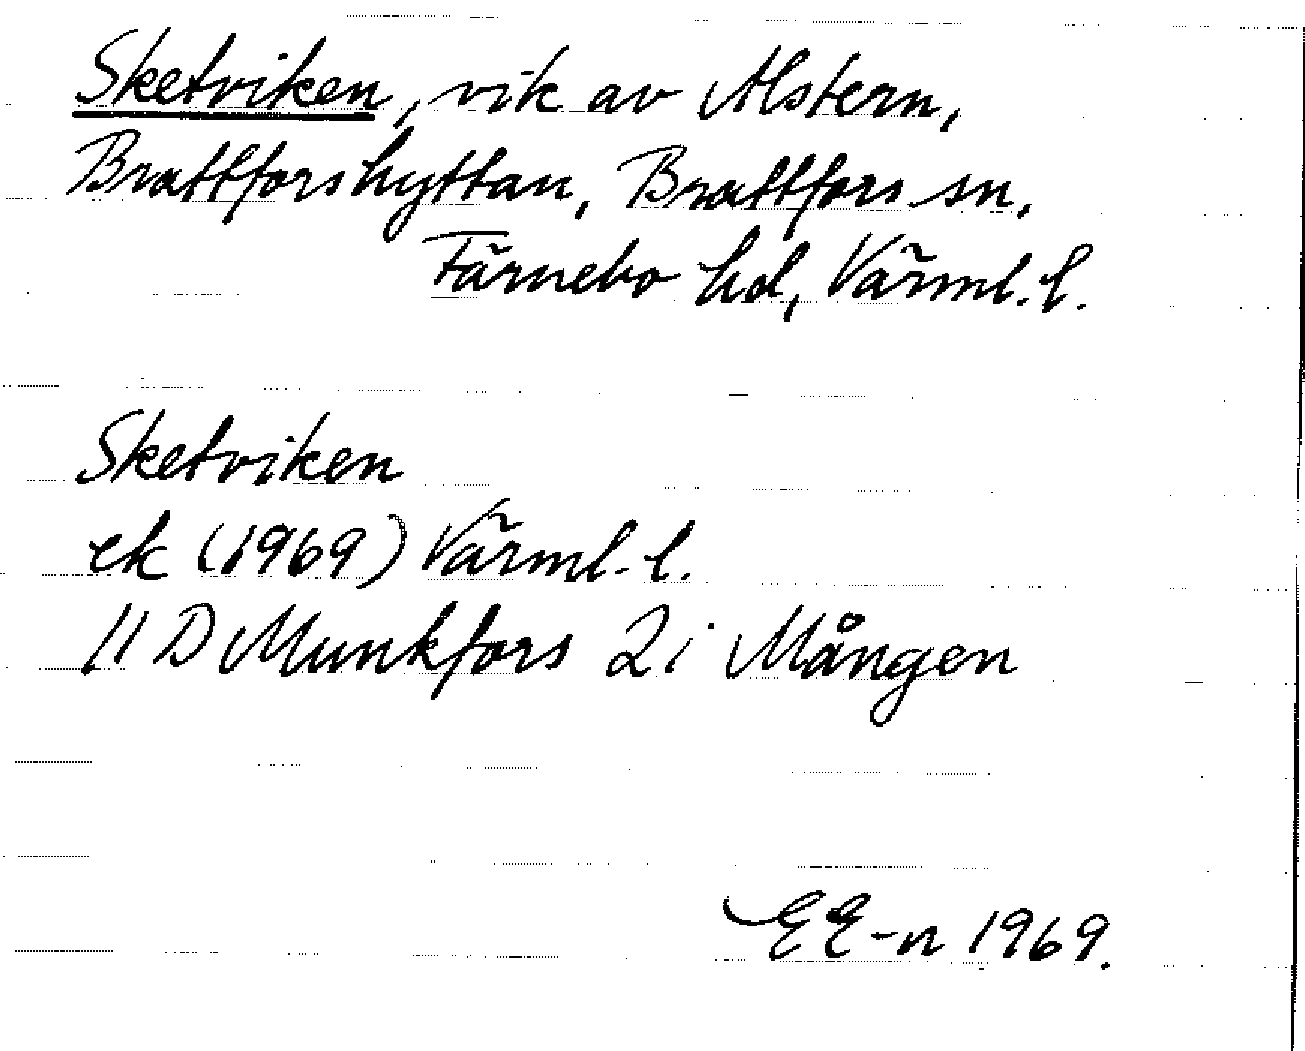 Sketviken, vik av Alstern,
Brattforshyttan, Brattfors sn,
Färnebo hd, Värml. l.
Sketviken
ek (1969) Värml. l.
11 D Munkfors 2 i Mången
EE-n 1969.